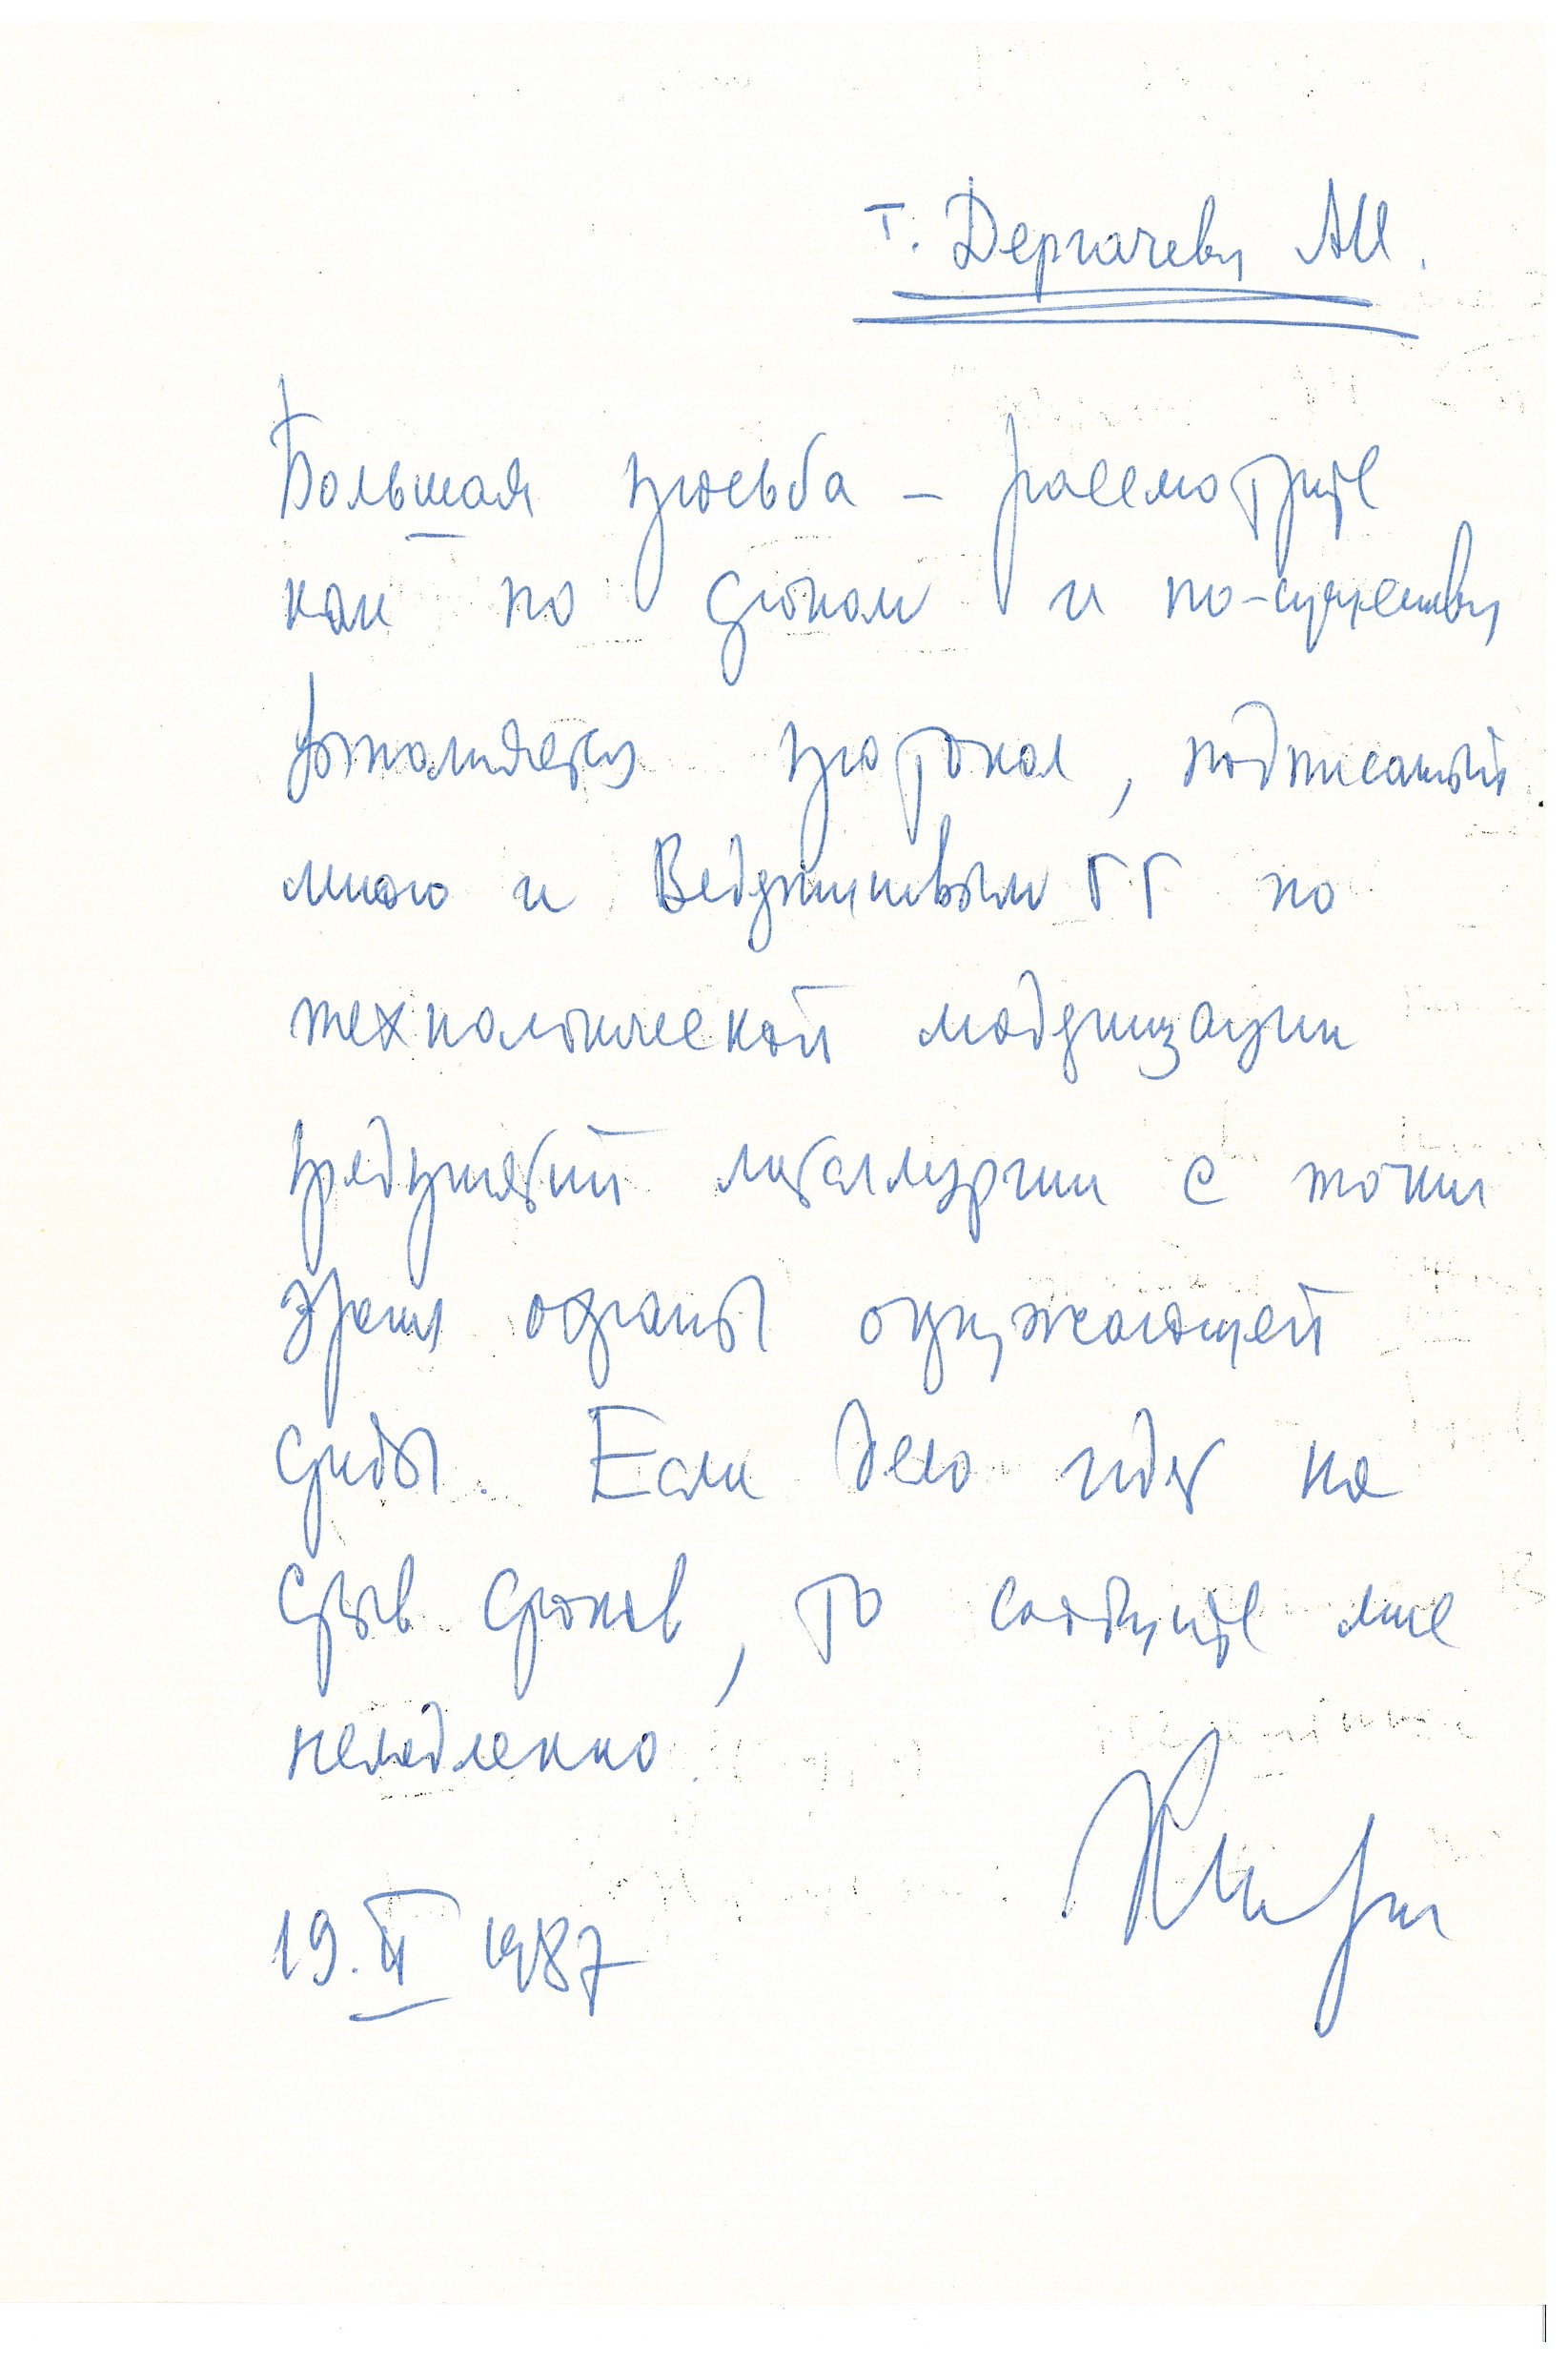 т. Дергачеву АИ.
Большая просьба – рассмотрите
как по срокам и по-существу
выполняется протокол, подписаный
мною и Ведерниковым ГГ по
технологической модернизации
предприятий металлургии с точки
зрения охраны окружающей
среды. Если дело идет на
срыв сроков, то сообщите мне
немедленно.
19.II 1987